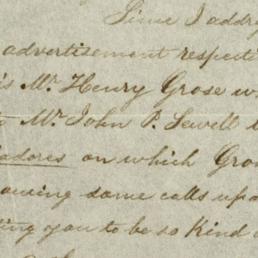 Since I addre
advertisement respecti
is Mr. Henry Grose w
Mr. John P. Sewell
adores on which Gro
owing some calls upo
ing you to be so kind